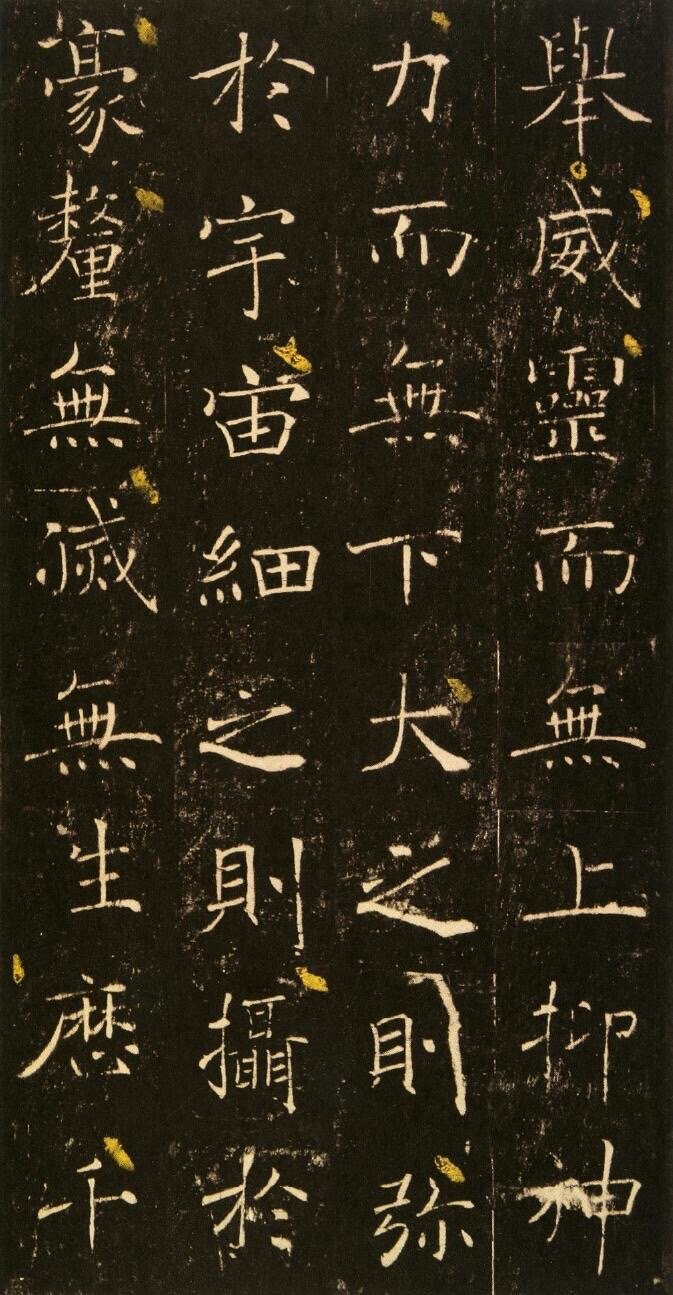 舉威靈而無上抑神
力而無下大之則弥
於宇宙細之則攝於
豪釐無滅無生歷千